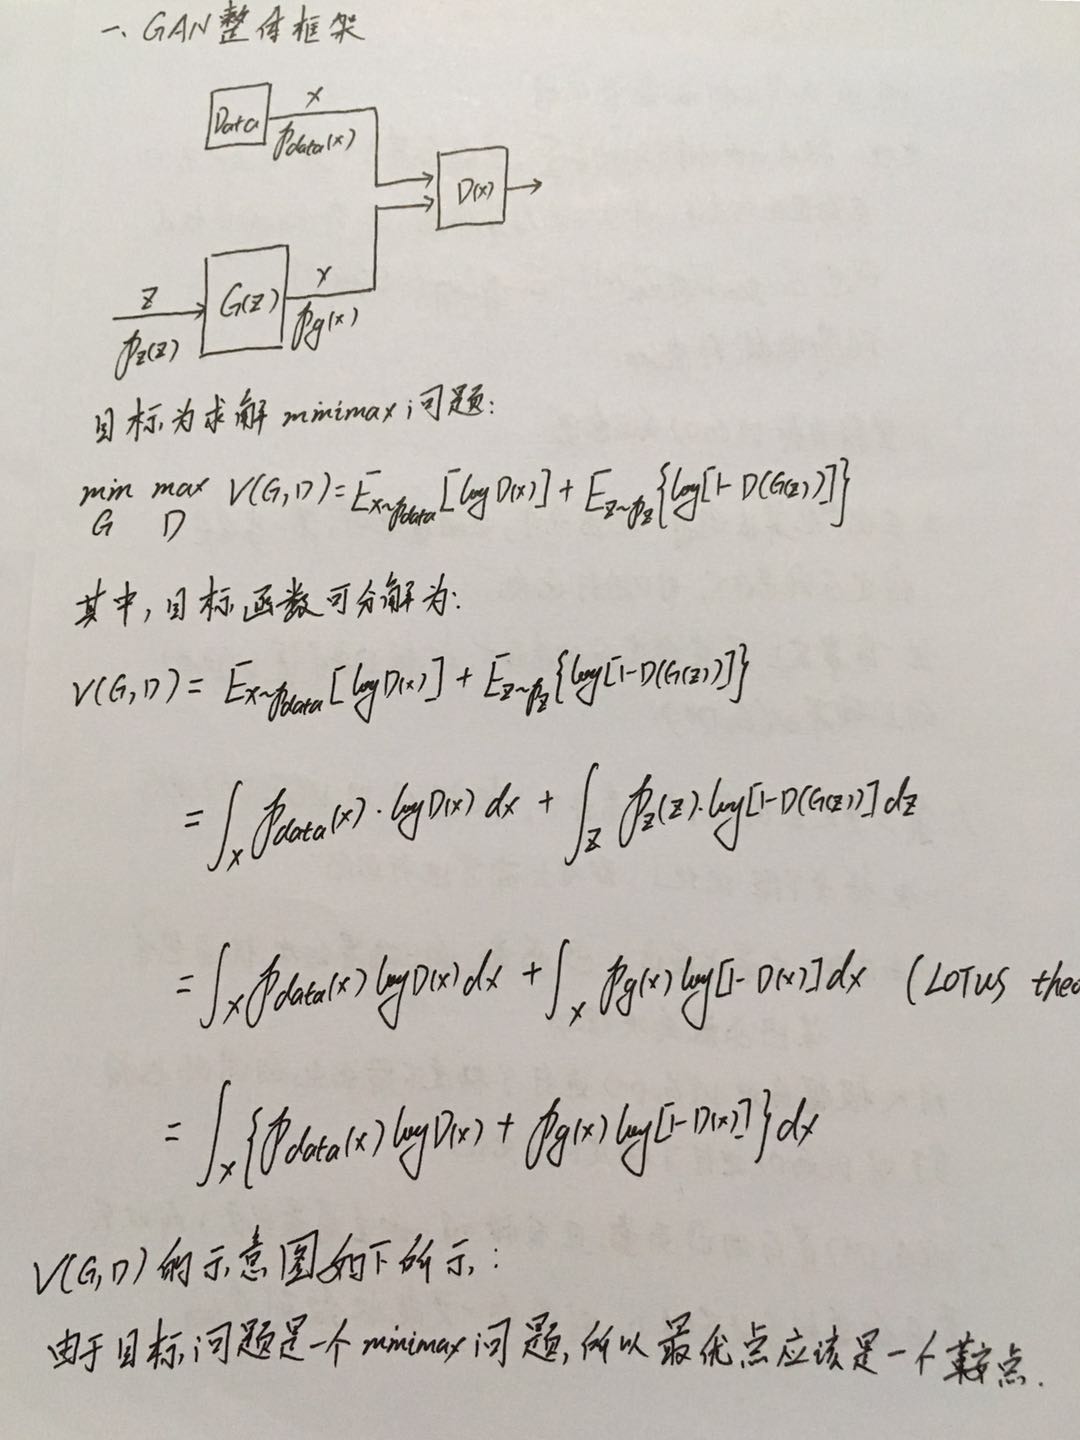 一、GAN整体框架
Data
x
p_data(x)
D(x)
z
p_z(z)
G(z)
x
p_g(x)
目标为求解minimax问题:
min_G max_D V(G,D)=E_{x~p_data}[logD(x)]+E_{z~p_z}{log[1-D(G(z))]}
其中,目标函数可分解为:
V(G,D)=E_{x~p_data}[logD(x)]+E_{z~p_z}{log[1-D(G(z))]}
=∫_x p_data(x)·logD(x)dx+∫_z p_z(z)·log[1-D(G(z))]dz
=∫_x p_data(x)logD(x)dx+∫_x p_g(x)log[1-D(x)]dx (LOTUS theo
=∫_x{p_data(x)logD(x)+p_g(x)log[1-D(x)]}dx
V(G,D)的示意图如下所示:
由于目标问题是一个minimax问题,所以最优点应该是一个鞍点.